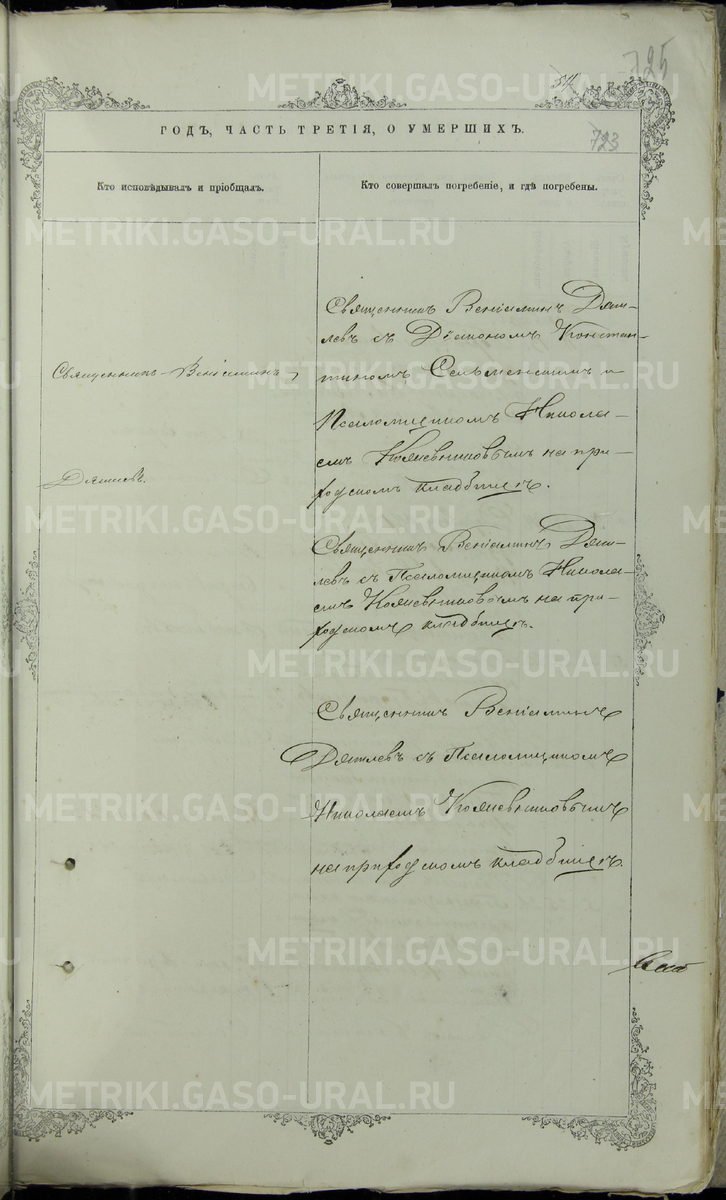 725
54
ГОДЪ, ЧАСТЬ ТРЕТІЯ, О УМЕРШИХЪ.
723
Кто исповѣдывалъ и пріобщалъ.
Кто совершалъ погребеніе, и гдѣ погребены.
Священникъ Веніаминъ Дяги-
левъ съ Діакономъ Констан-
тиномъ и
Псаломщикомъ Никола-
емъ Кожевниковымъ на при-
ходскомъ кладбищѣ.
Священникъ Веніаминъ
Дягилевъ.
Священникъ Веніаминъ Дяги-
левъ съ Псаломщикомъ Никола-
емъ Кожевниковымъ на при-
ходскомъ кладбищѣ.
Священникъ Веніаминъ
Дягилевъ съ Псаломщикомъ
Николаемъ Кожевниковымъ
на приходскомъ кладбищѣ.
METRIKI.GASO-URAL.RU